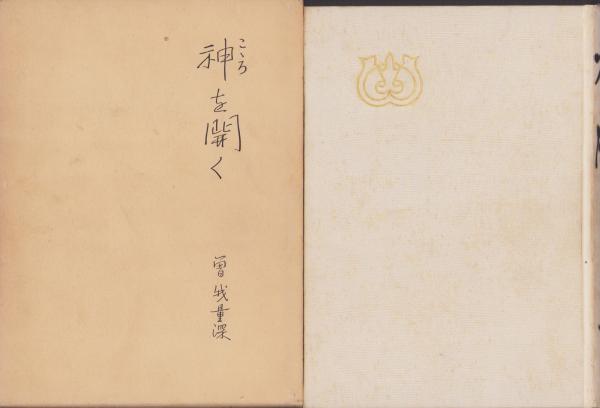 神を開く
こころ
曽我量深